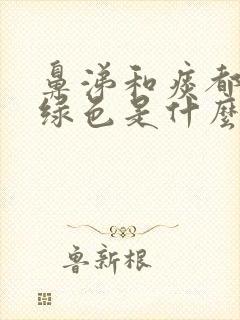 鼻涕和痰都
绿色是什麼
鲁新根